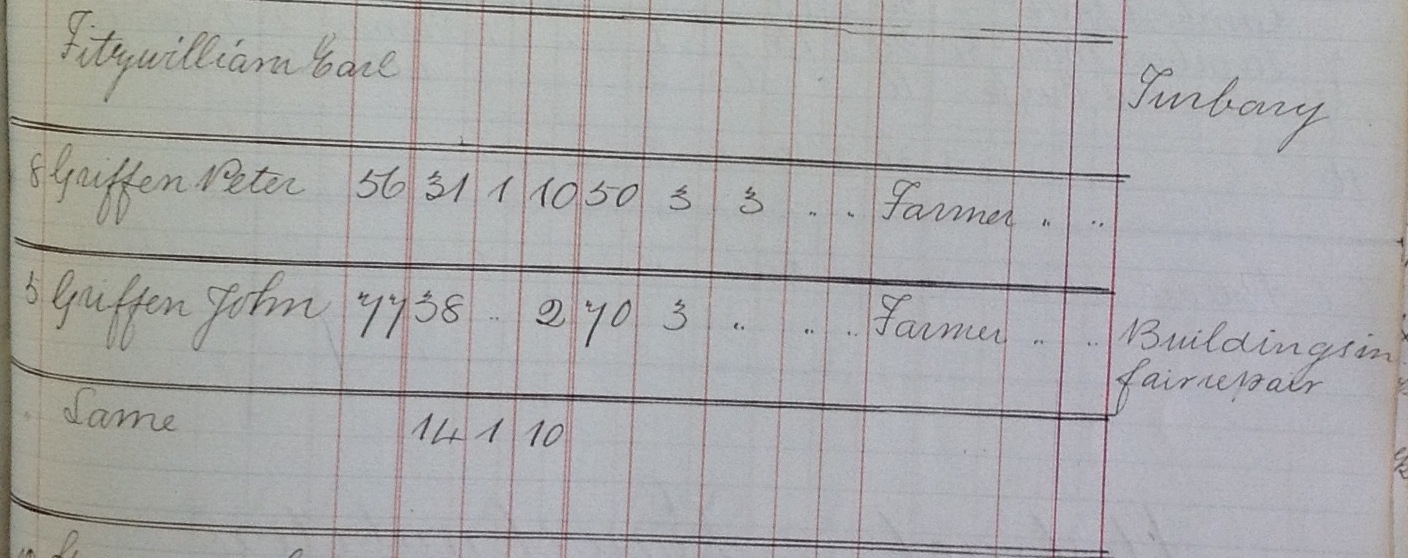 Fitzwilliam Earl Turbary
8 Griffen Peter 56 31 1 10 50 3 3 .. .. Farmer .. ..
5 Griffen John 77 38 .. 2 70 3 .. .. .. Farmer .. .. Buildings in
fair repair
Same 14 1 10